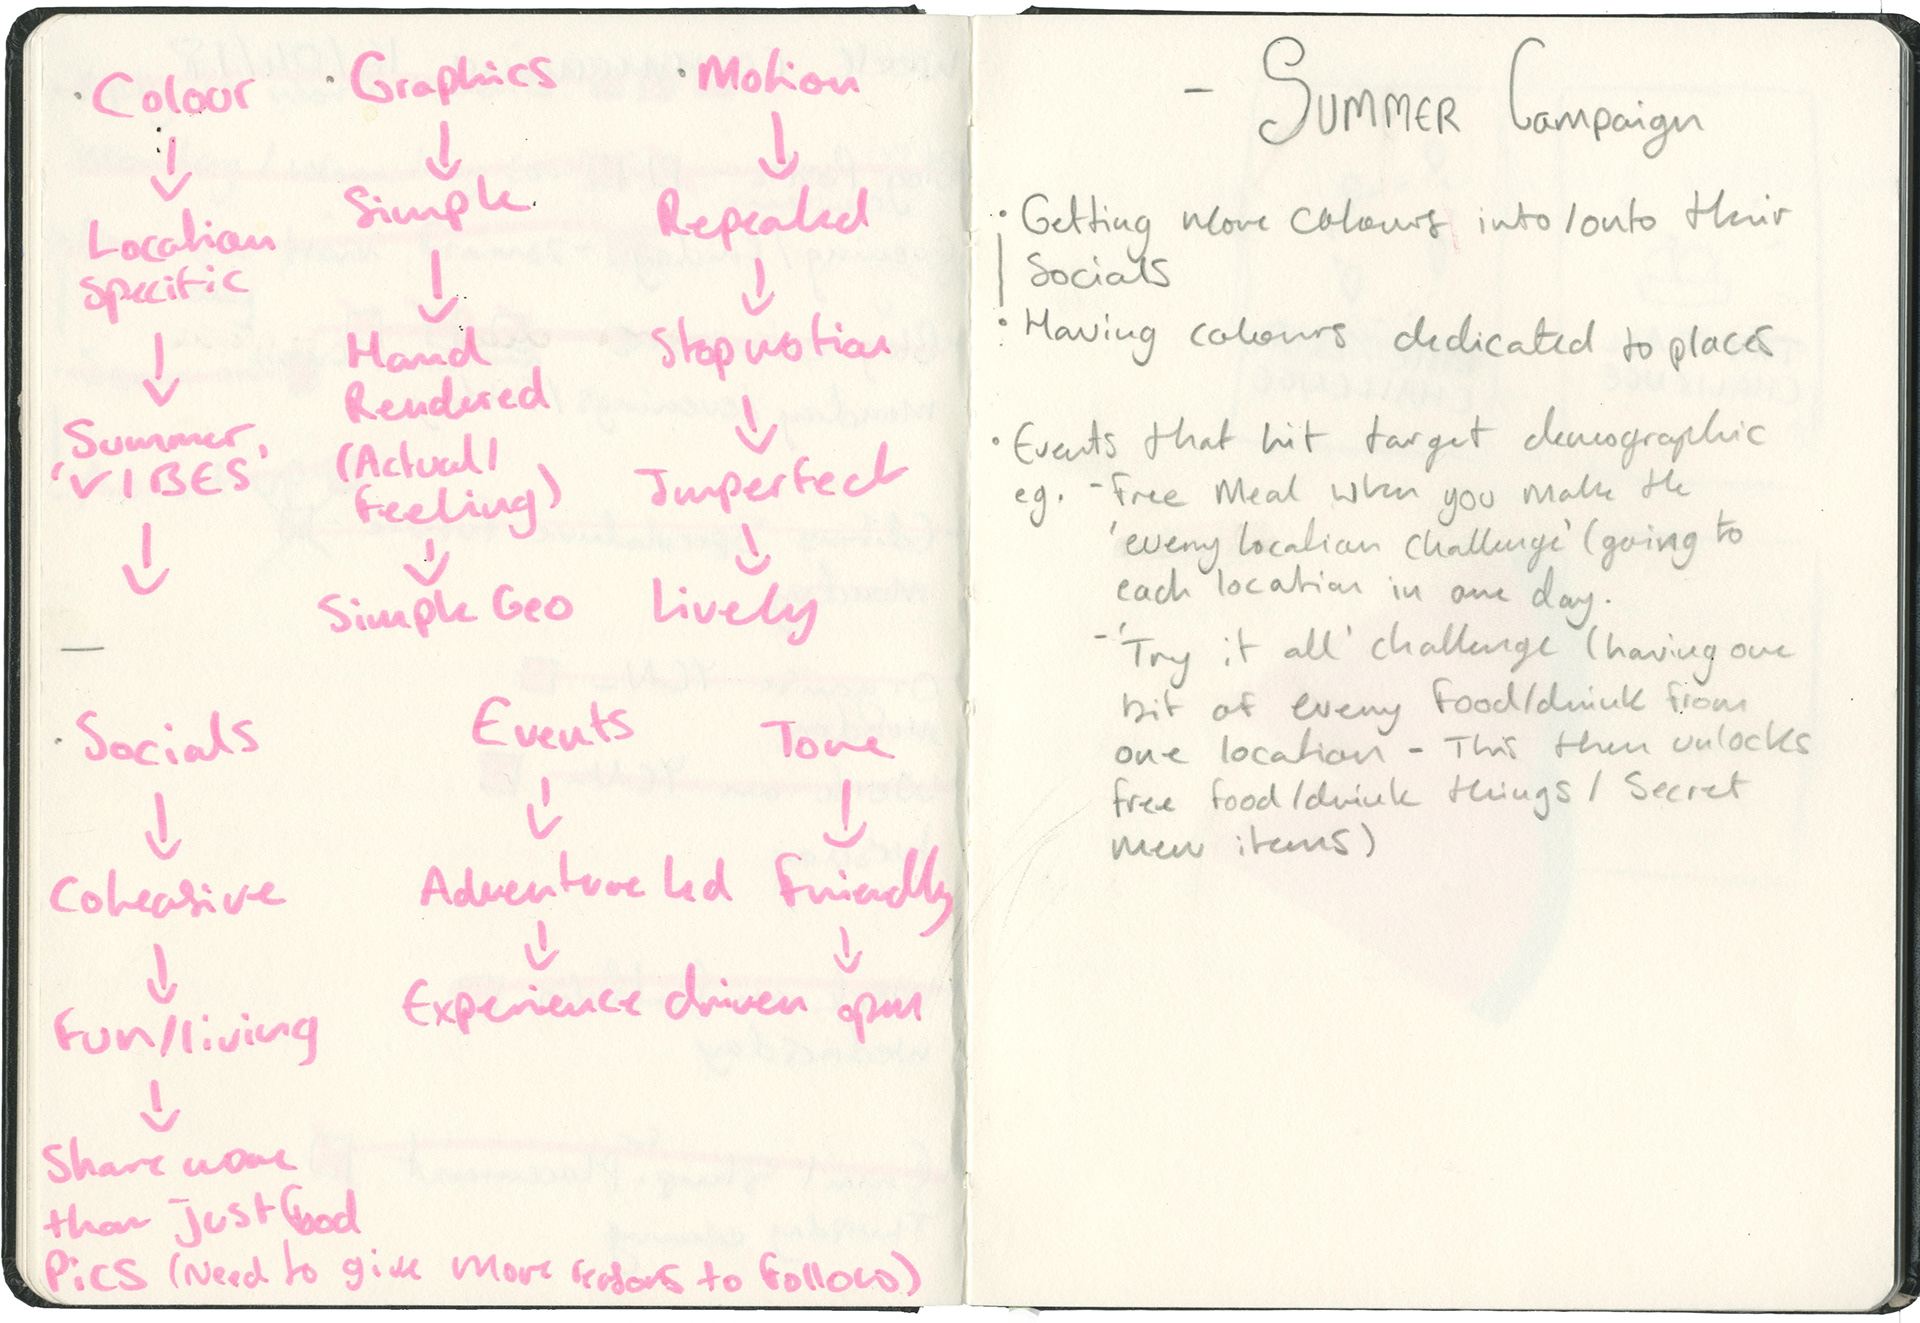 · Colour
↓
Location
Specific
↓
Summer
'VIBES'
↓
· Graphics
↓
Simple
↓
Hand
Rendered
(Actual/
Feeling)
↓
Simple Geo
· Motion
↓
Repeated
↓
Stopmotion
↓
Imperfect
↓
Lively
—
· Socials
↓
Coheasive
↓
Fun/living
↓
Share more
than just Good
Pics (Need to give more reasons to follow)
Events
↓
Adventure led
↓
Experience driven
Tone
↓
Friendly
↓
open
- SUMMER Campaign
· Getting more colours into/onto their
Socials
· Having colours dedicated to places
· Events that hit target demographic
eg. - Free Meal when you make the
'every location challenge' (going to
each location in one day.
- 'Try it all' challenge (having one
bit of every food/drink from
one location - This then unlocks
free food/drink things / Secret
menu items)